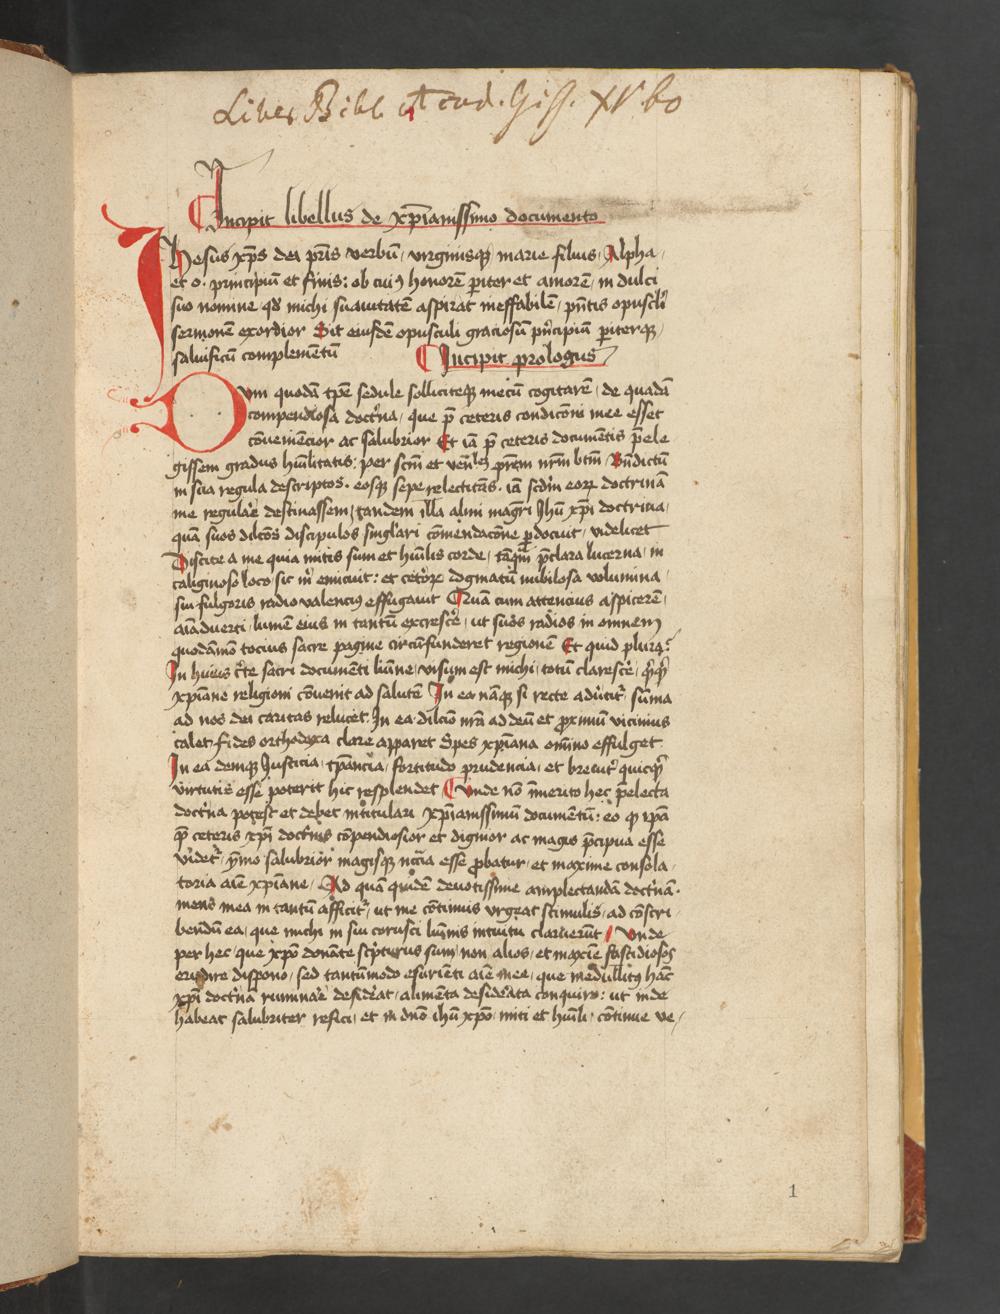 Liber Bibl Acad. Giss. XV 60
Incipit libellus de xp̄ianissimo documento
Ihesus xp̄s dei pr̄is verbū, virginisq; marie filius, Alpha,
et o. principiū et finis: ob cuiꝰ honorē ꝑiter et amorē, in dulci
suo nomine qd' michi suauitatē aspirat ineffabilē, pn̄tis opuscl'i
sermonē exordior Sit eiusdē opusculi graciosū pn̄cipiū ꝑiterq;
saluificū complementū
Incipit prologus
Dum quodā tp̄e sedule solliciteq; mecū cogitarē, de quadā
compendiosa doct'na, que p̄ ceteris condicōni mee esset
cōueniēcior ac salubrior Et iā p̄ ceteris documētis p̄ele
gissem gradus hūilitatis: per scm̄ et ven'lē p̄rem nr̄m btm̄ Bn̄dictū
in sua regula descriptos. eosq; sepe relectitās. iā scdm̄ eoꝝ doctrinā
me regula'e destinassem, tandem illa almi mag'ri Ihū xp̄i doctrina,
quā suos dilcōs discipulos sing'lari cōmendacōne ꝑdocuit, videlicet
Discite a me quia mitis sum et hūilis corde, tāq̄m p̄clara lucerna, in
caliginoso loco, sic m' emicuit: et cet'oꝝ dogmatū nubilosa volumina,
sui fulgoris radio valenciꝰ effugauit Quā cum attencius aspicerē,
aīaduerti, lumē eius in tantū excresce', ut suos radios in omnem
quodāmō tocius sacre pagine circūfunderet regionē Et quid plura?
In huiꝰ c'te sacri documēti lūine, visum est michi, totū claresce', q'cq'
xp̄iane religioni cōuenit ad salutē In ea nāq; si recte adu'tit', sūma
ad nos dei caritas relucet. In ea dilcio nr̄a ad deū et ꝓximū vicinius
calet. fides orthodoxa clare apparet Spes xp̄iana om̄ino effulget
In ea deniq; Iusticia, tp̄ancia, fortitudo prudencia, et breuit' quicq'
virtutis esse poterit hic resplendet Unde nō inmerito hec p̄electa
doct'na potest et debet intitulari xp̄ianissimū documentū: eo ꝙ ip̄a
p̄ ceteris xp̄i doct'nis cōpendiosior et dignior ac magis p̄cipua esse
videt', ymo salubrior magisq; nc̄ria esse ꝓbatur, et maxime consola
toria aīe xp̄iane, Ad quā quidē deuotissime amplectandā doct'nā.
mens mea in tantū afficit', ut me cōtinuis vrgeat stimulis, ad cōscri
bendū ea, que michi in sui corusci lūinis intuitu claruerūt Unde
per hec, que xp̄o donāte sc'pturus sum, non alios, et maxīe fastidiosos
erudire dispono, sed tantūmodo esurienti aīe mee, que medullitꝰ hāc
xp̄i doct'nā rumina'e deside'at, alimēta deside'ata conquiro: ut inde
habeat salubriter refici, et in dn̄o ihū xp̄o, miti et hūili, cōtinue ve
1